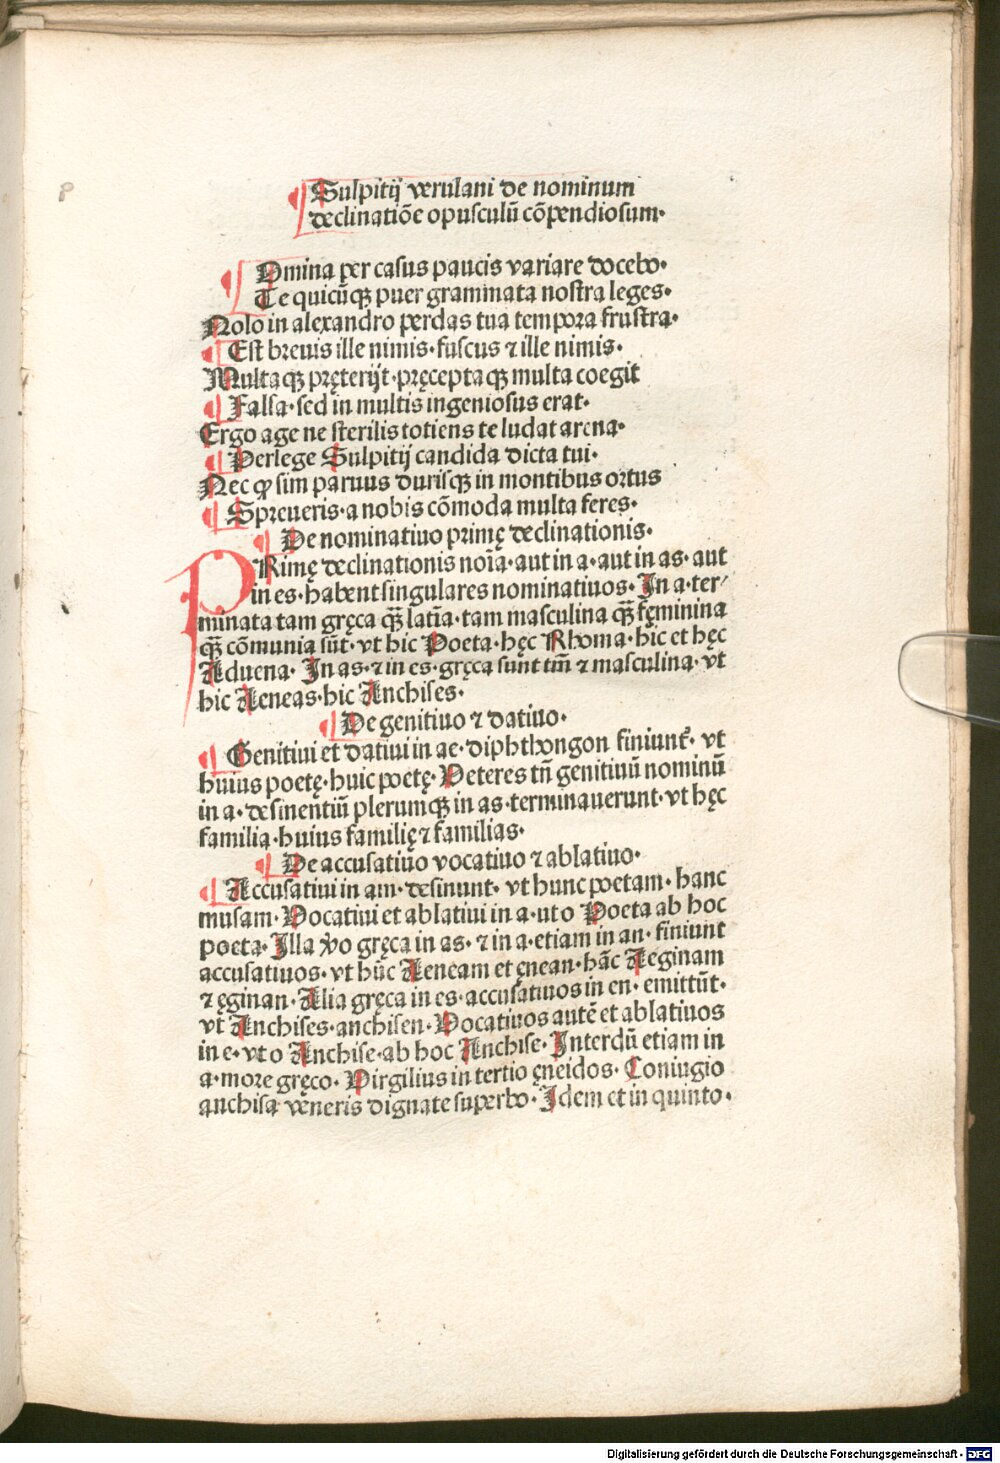 ¶Sulpitij verulani de nominum
declinatiōe opusculū cōpendiosum·
¶Omina per casus paucis variare docebo·
Te quicūqꝫ puer grammata nostra leges·
Nolo in alexandro perdas tua tempora frustra·
¶Est breuis ille nimis·fuscus ⁊ ille nimis·
Multa qꝫ pręterijt·pręcepta qꝫ multa coegit
¶Falsa·sed in multis ingeniosus erat·
Ergo age ne sterilis totiens te ludat arena·
¶Perlege Sulpitij candida dicta tui·
Nec ꝙ sim paruus durisqꝫ in montibus ortus
¶Spreueris·a nobis cōmoda multa feres·
¶De nominatiuo primę declinationis·
PRimę declinationis noīa·aut in a·aut in as·aut
in es·habent singulares nominatiuos·In a·ter/
minata tam gręca qꝫ̄ latīa·tam masculina qꝫ̄ fęminina
qꝫ̄ cōmunia sūt·vt hic Poeta·hęc Rhoma·hic et hęc
Aduena·In as·⁊ in es·gręca sunt tm̄ ⁊ masculina·vt
hic Aeneas·hic Anchises·
¶De genitiuo ⁊ datiuo·
¶Genitiui et datiui in ae·diphthongon finiunt̄·vt
huius poetę·huic poetę·Veteres tn̄ genitiuū nominū
in a·desinentiū plerumqꝫ in as·terminauerunt·vt hęc
familia·huius familię ⁊ familias·
¶De accusatiuo vocatiuo ⁊ ablatiuo·
¶Accusatiui in am·desinunt·vt hunc poetam·hanc
musam·Vocatiui et ablatiui in a·ut o Poeta ab hoc
poeta·Illa v̄o gręca in as·⁊ in a·etiam in an·finiunt
accusatiuos·vt hūc Aeneam et ęnean·hāc Aeginam
⁊ ęginan·Alia gręca in es·accusatiuos in en·emittūt·
vt Anchises·anchisen·Vocatiuos autē et ablatiuos
in e·vt o Anchise·ab hoc Anchise·Interdū etiam in
a·more gręco·Virgilius in tertio ęneidos·Coniugio
anchisa veneris dignate superbo·Idem et in quinto·
Digitalisierung gefördert durch die Deutsche Forschungsgemeinschaft - DFG